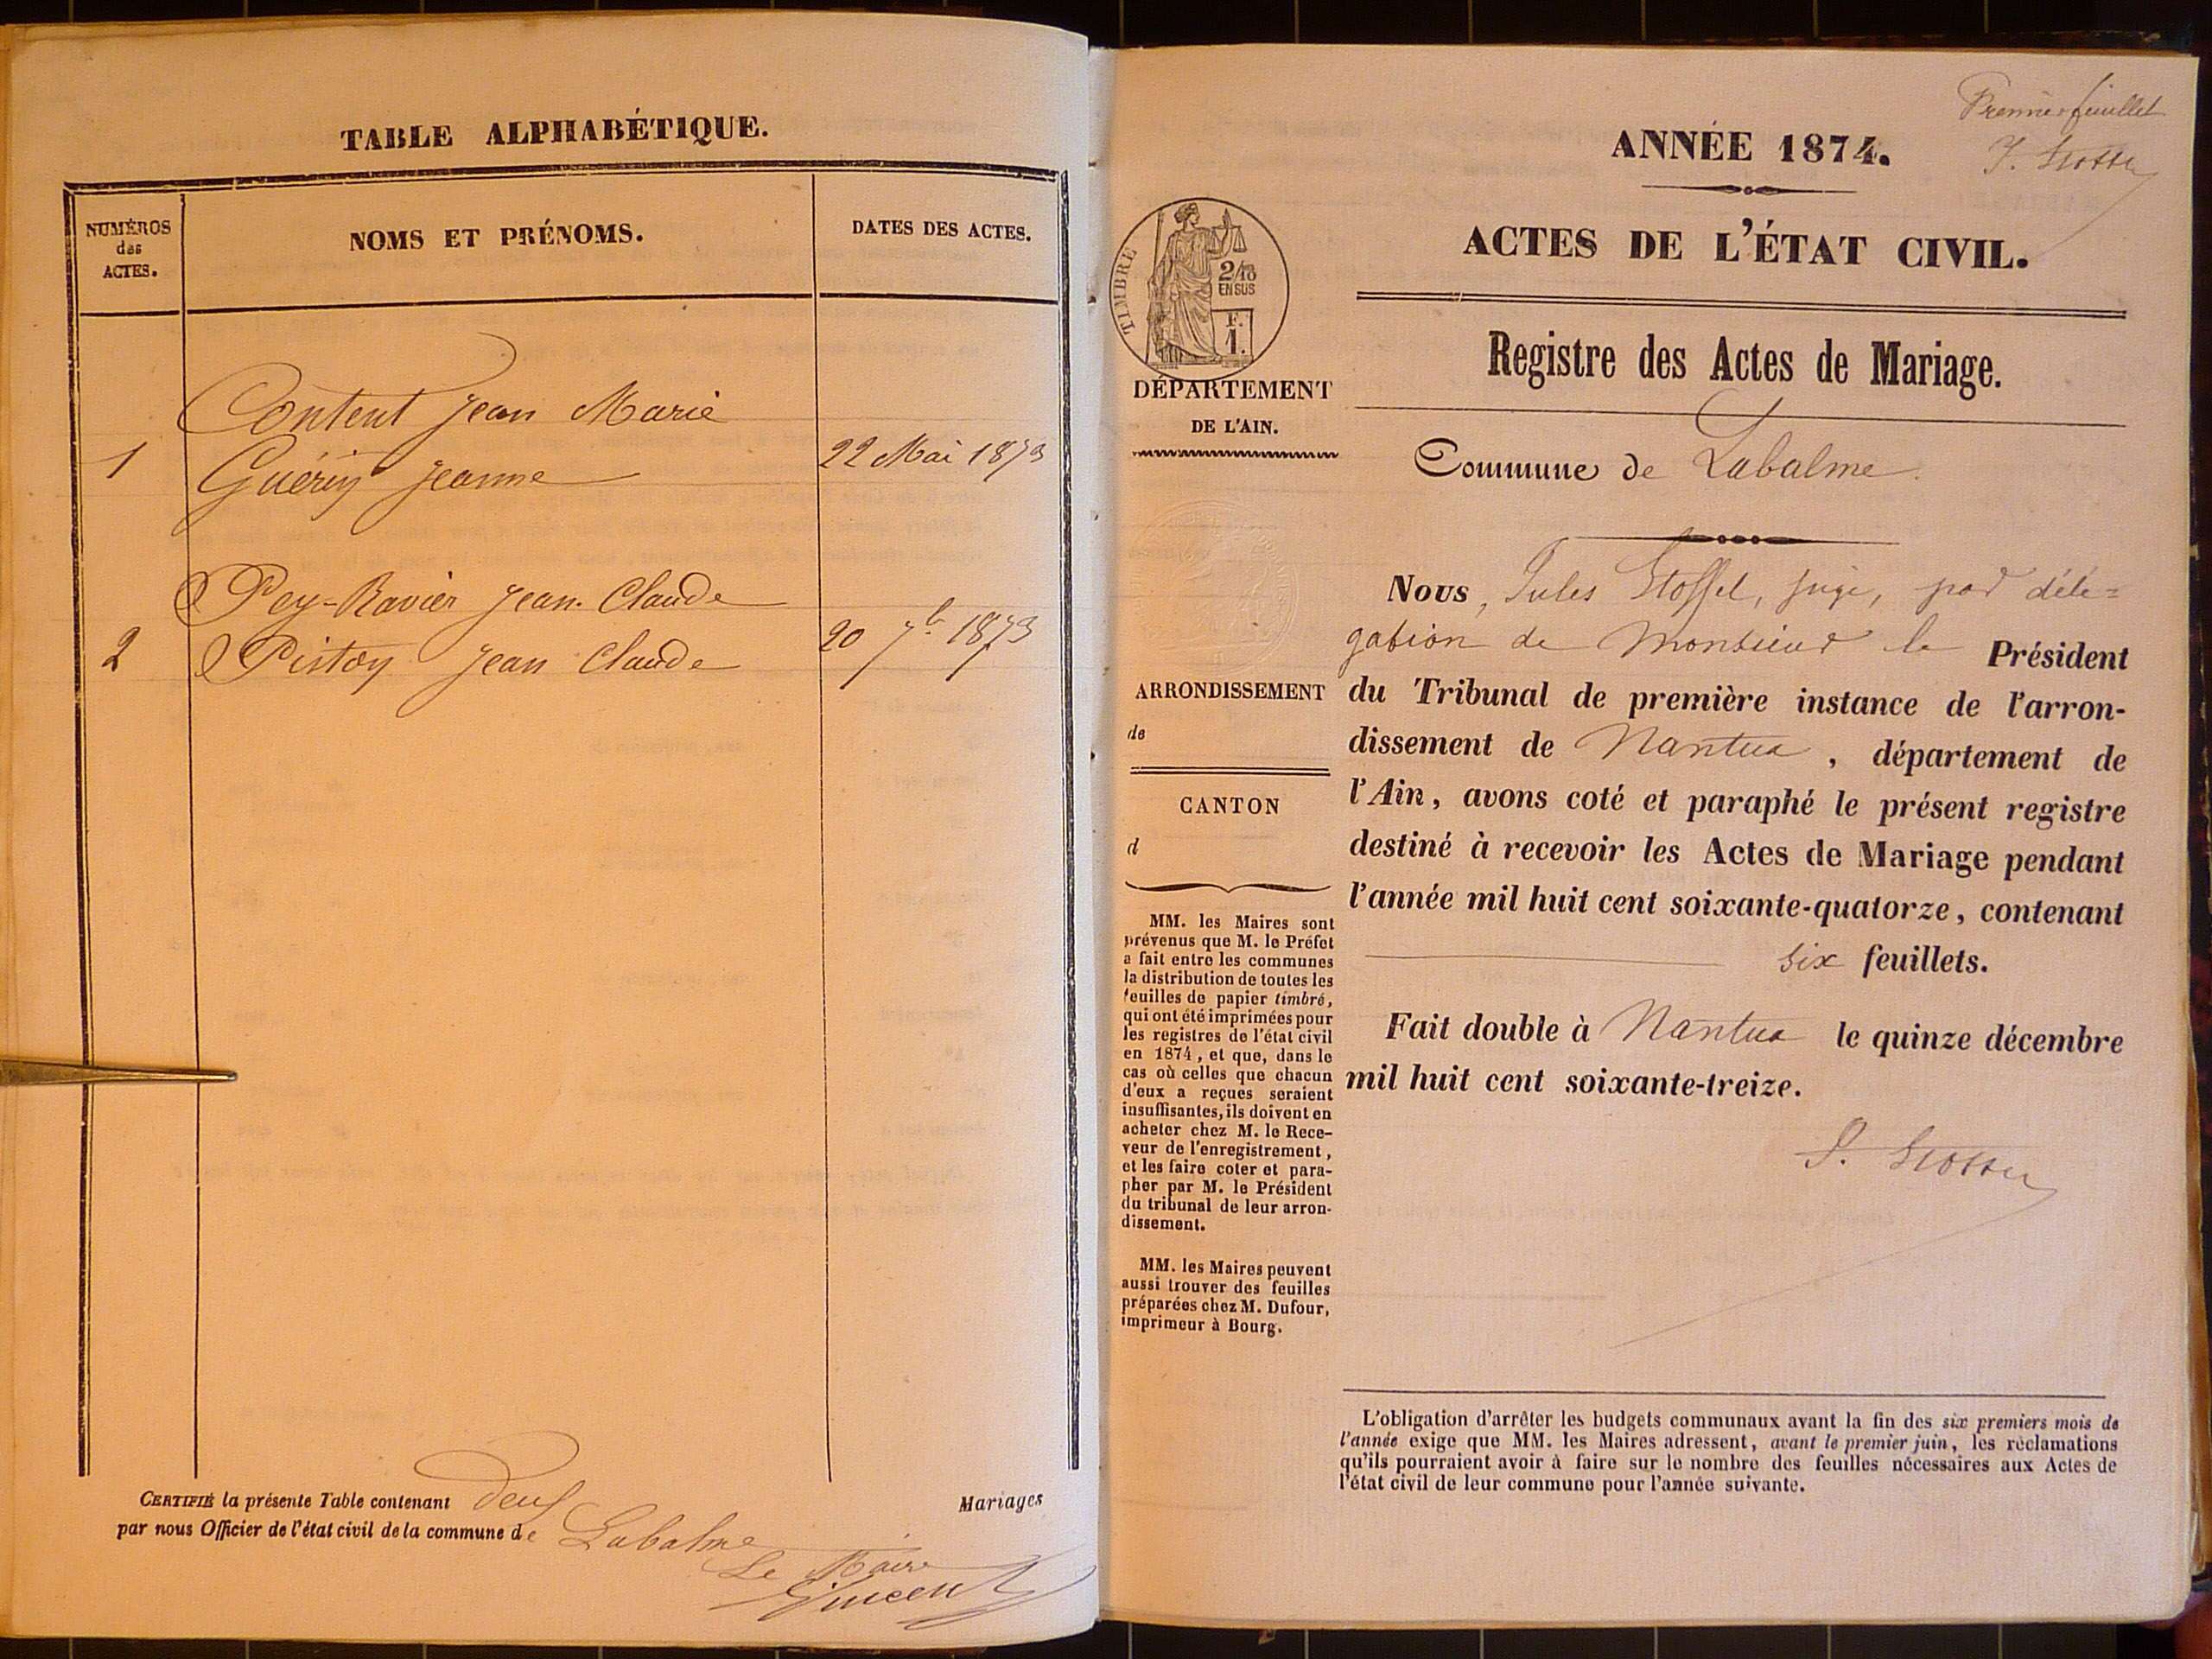 TABLE ALPHABÉTIQUE.
NUMÉROS
des
ACTES.
NOMS ET PRÉNOMS.
DATES DES ACTES.
Content Jean Marie
1
Guérin Jeanne
22 Mai 1873
Pey-Ravier Jean-Claude
2
Pistoy Jean Claude
20 7b. 1873
CERTIFIÉ la présente Table contenant deux Mariages
par nous Officier de l'état civil de la commune de Labalme
Le Maire
Vincent
Premier feuillet
ANNÉE 1874.
ACTES DE L'ÉTAT CIVIL.
TIMBRE
2/10
EN SUS
F.
1.
DÉPARTEMENT
DE L'AIN.
Registre des Actes de Mariage.
Commune de Labalme.
Nous, Jules Stoffel, juge, par délé=
gation de Monsieur le Président
du Tribunal de première instance de l'arron-
dissement de Nantua, département de
l'Ain, avons coté et paraphé le présent registre
destiné à recevoir les Actes de Mariage pendant
l'année mil huit cent soixante-quatorze, contenant
six feuillets.
Fait double à Nantua le quinze décembre
mil huit cent soixante-treize.
ARRONDISSEMENT
de
CANTON
d
MM. les Maires sont
prévenus que M. le Préfet
a fait entre les communes
la distribution de toutes les
feuilles de papier timbré,
qui ont été imprimées pour
les registres de l'état civil
en 1874, et que, dans le
cas où celles que chacun
d'eux a reçues seraient
insuffisantes, ils doivent en
acheter chez M. le Rece-
veur de l'enregistrement,
et les faire coter et para-
pher par M. le Président
du tribunal de leur arron-
dissement.
MM. les Maires peuvent
aussi trouver des feuilles
préparées chez M. Dufour,
imprimeur à Bourg.
L'obligation d'arrêter les budgets communaux avant la fin des six premiers mois de
l'année exige que MM. les Maires adressent, avant le premier juin, les réclamations
qu'ils pourraient avoir à faire sur le nombre des feuilles nécessaires aux Actes de
l'état civil de leur commune pour l'année suivante.